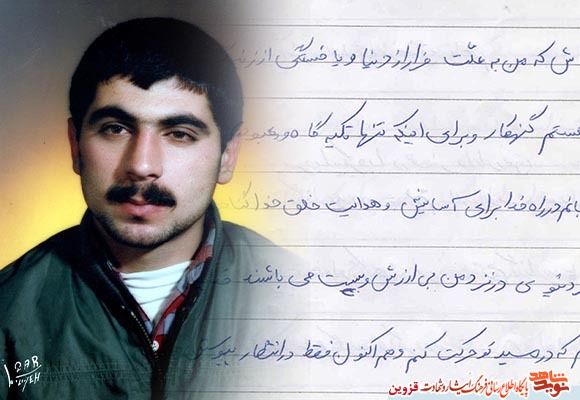 ش که من به علّت فرار از دنیا و یا خستگی از زند
هستم گنهکار و برای اینکه تنها تکیه گاه و معبو
در راه خدا برای آسایش و هدایت خلق خدا
در نزد من بی ارزش و پست می باشند
که در مسیر تو حرکت کنم و هم اکنون فقط در انتظار
نوید شاهد
پایگاه اطلاع رسانی فرهنگ ایثار و شهادت قزوین